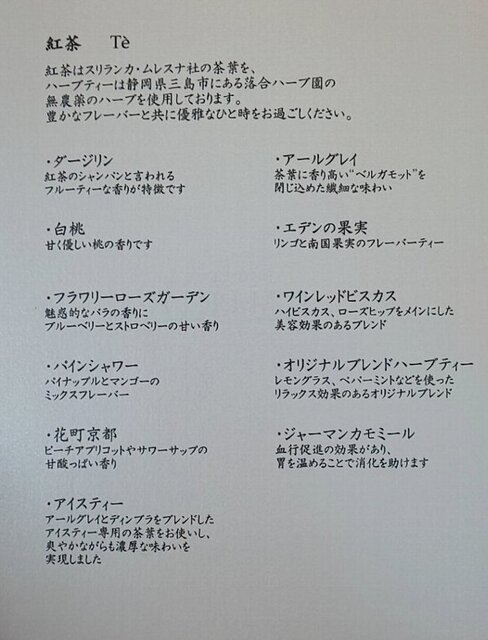 紅茶　Tè
紅茶はスリランカ・ムレスナ社の茶葉を、
ハーブティーは静岡県三島市にある落合ハーブ園の
無農薬のハーブを使用しております。
豊かなフレーバーと共に優雅なひと時をお過ごしください。
・ダージリン
紅茶のシャンパンと言われる
フルーティーな香りが特徴です
・白桃
甘く優しい桃の香りです
・フラワリーローズガーデン
魅惑的なバラの香りに
ブルーベリーとストロベリーの甘い香り
・パインシャワー
パイナップルとマンゴーの
ミックスフレーバー
・花町京都
ピーチアプリコットやサワーサップの
甘酸っぱい香り
・アイスティー
アールグレイとディンブラをブレンドした
アイスティー専用の茶葉をお使いし、
爽やかながらも濃厚な味わいを
実現しました
・アールグレイ
茶葉に香り高い"ベルガモット"を
閉じ込めた繊細な味わい
・エデンの果実
リンゴと南国果実のフレーバーティー
・ワインレッドビスカス
ハイビスカス、ローズヒップをメインにした
美容効果のあるブレンド
・オリジナルブレンドハーブティー
レモングラス、ペパーミントなどを使った
リラックス効果のあるオリジナルブレンド
・ジャーマンカモミール
血行促進の効果があり、
胃を温めることで消化を助けます